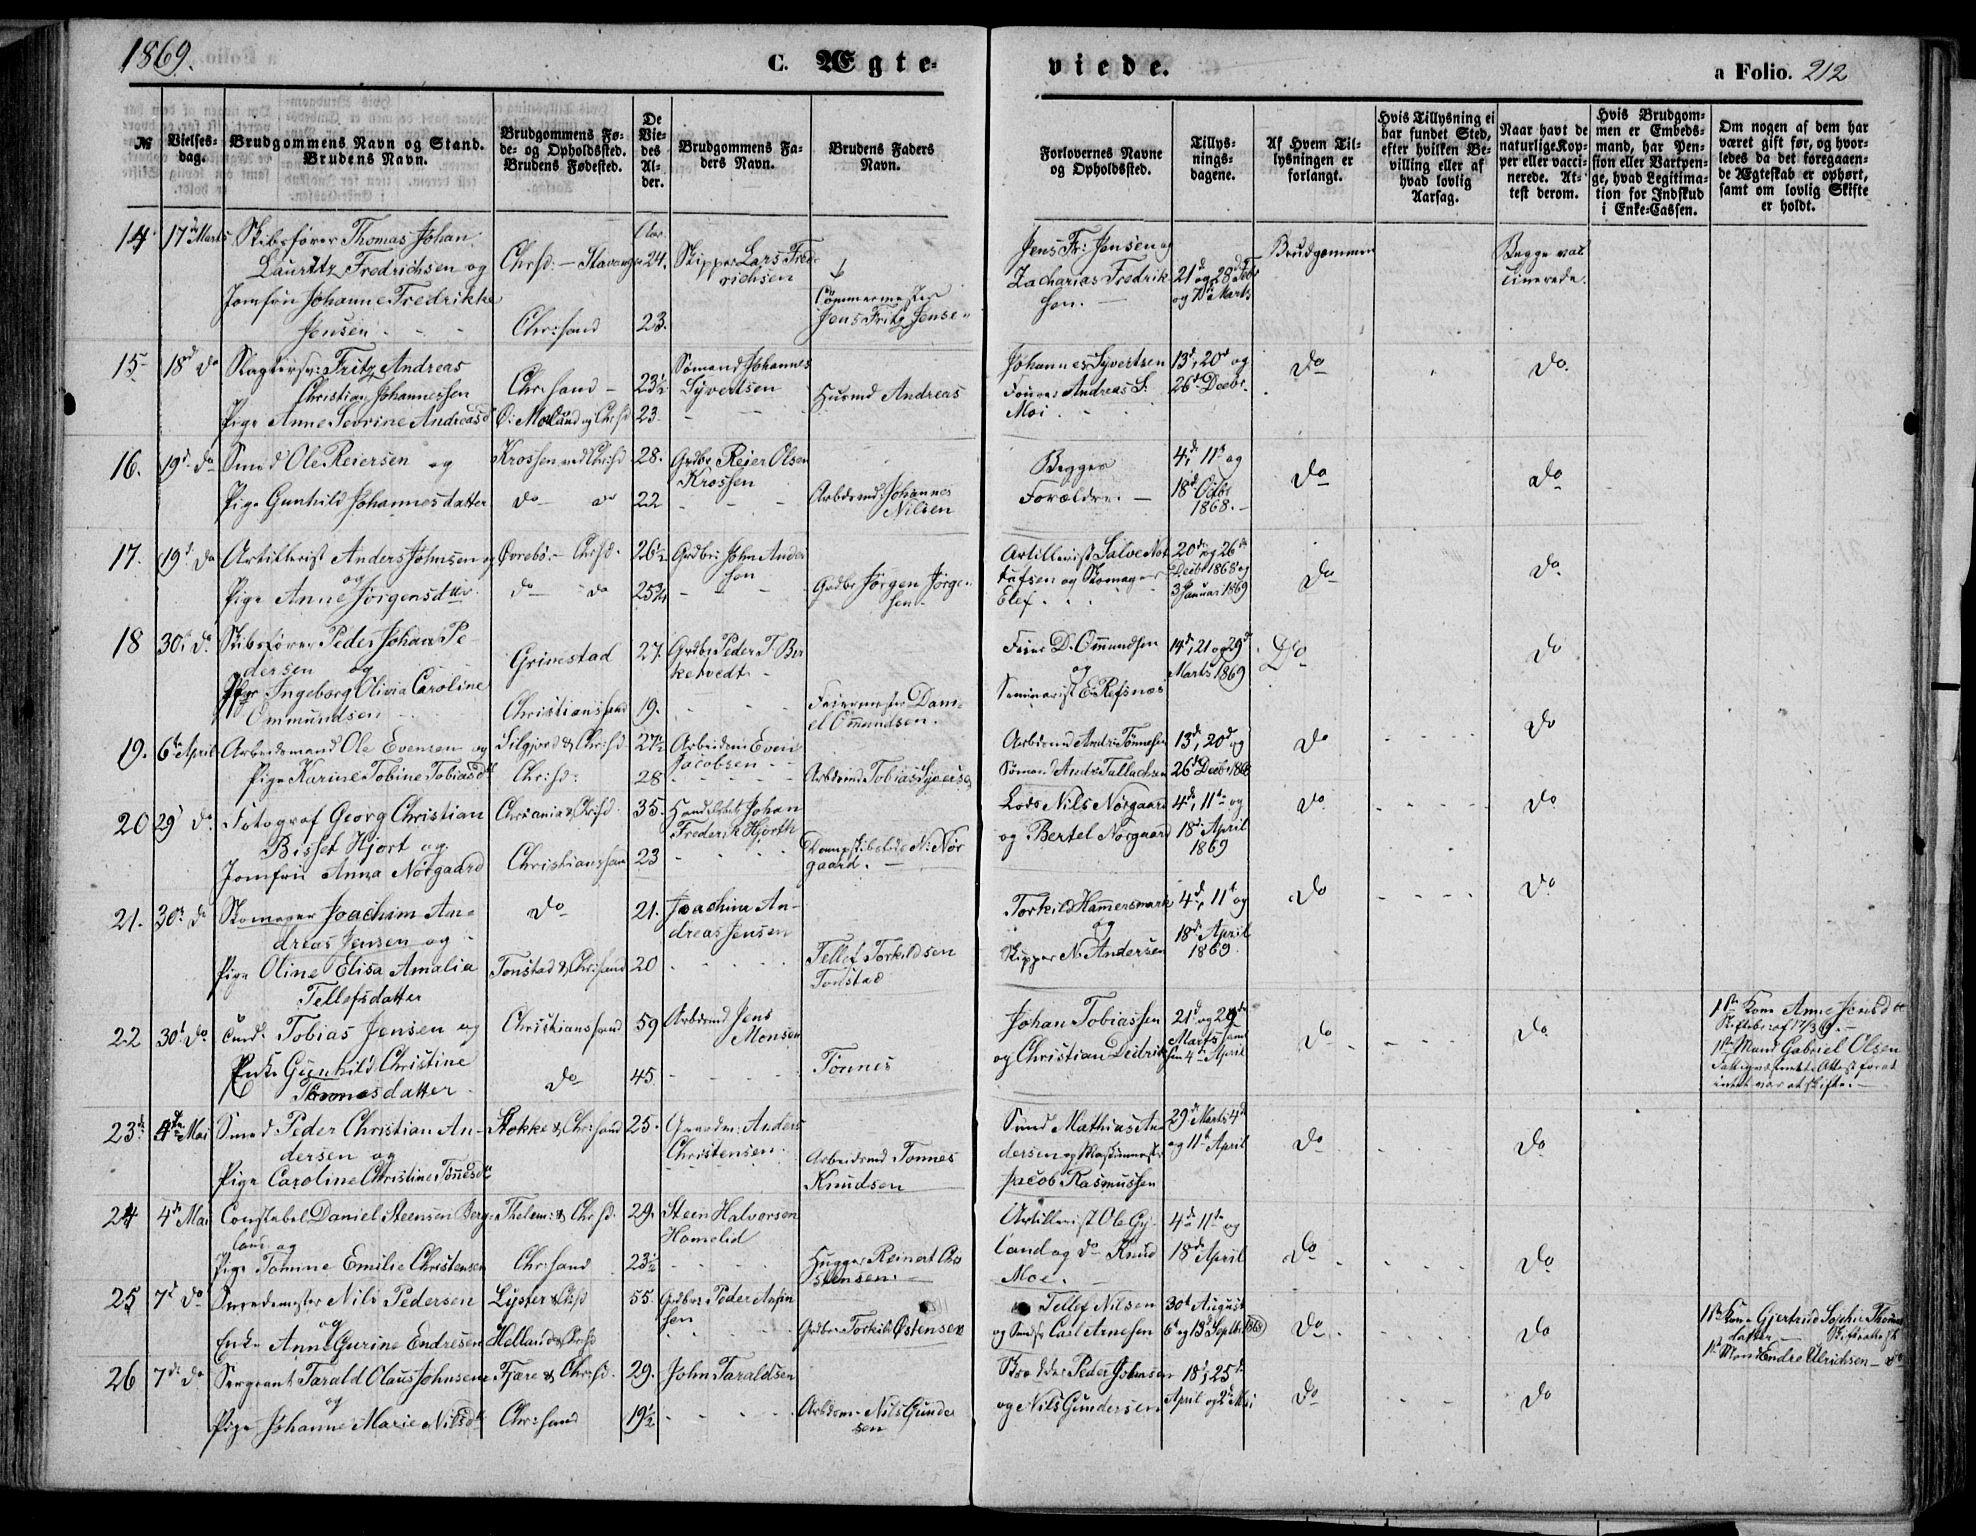 1869.
C. Ægte-
viede.
a Folio. 212
№
Vielses-
dag.
Brudgommens Navn og Stand.
Brudens Navn.
Brudgommens Fø-
de- og Opholdssted.
Brudens Fødested.
De
Vie-
des
Al-
der.
Brudgommens Fa-
ders Navn.
Brudens Faders
Navn.
Forlovernes Navne
og Opholdssted.
Tillys-
nings-
dagene.
Af Hvem Til-
lysningen er
forlangt.
Hvis Tillysning ei
har fundet Sted,
efter hvilken Be-
villing eller af
hvad lovlig
Aarsag.
Naar havt de
naturlige Kop-
per eller vacci-
nerede. At-
test derom.
Hvis Brudgom-
men er Embeds-
mand, har Pen-
sion eller Vartpen-
ge, hvad Legitima-
tion for Indskud
i Enke-Cassen.
Om nogen af dem har
været gift før, og hvor-
ledes da det foregaaen-
de Ægteskab er ophørt,
samt om lovlig Skifte
er holdt.
14. 17de Marts Skibsfører Thomas Johan
Lauritz Fredrichsen og
Jomfru Johanne Fredrikke
Jensen
Chrsd: - Stavanger
Chr:sand
Aar
24.
23.
Skipper Lars Fred-
richsen
Tømmermester
Jens Fritz Jensen
Jens Fr: Jensen og
Zacharias Fredrik-
sen.
21d og 28d Febr
og 7de Marts
Brudgommen
Begge vac-
cinerede.
15 18d do Slagtersv: Fritz Andreas
Christian Johannessen
Pige Anne Severine Andreasd
Chr:sand
Ø: Moland og Chrsd
23½
23
Sømand Johannes
Syvertsen
Husmd Andreas
Johannes Syvertsen
Andreas S.
Moi
13d, 20d og
26d Decbr.
do
do
16. 19d do Smed Ole Reiersen og
Pige Gunhild Johannesdatter
Krossen ved Chrsd
do do
28.
22
Grdbr Reier Olsen
Krossen
Arbdsmd Johannes
Nilsen
Begges
Forældre.
4de, 11te og
18de Octbr
1868.
do
do
17. 19d do Artillerist Anders Johnsen og
Pige Anne Jørgensdtr
Øvrebø - Chrsd.
do do
26½
25¾
Grdbr: John Ander-
sen
Grdbr Jørgen Jørgen-
sen
Artillerist Salve Not-
tufsen og Skomager
Elef
20de og 26de
Decbr 1868 og
3 Januar 1869
do
do
18 30d do Skibsfører Peder Johan Pe-
dersen og
Pige Ingeborg Olivia Caroline
Ommundsen
Grimestad
Christianssand
27.
19.
Grdbr Peder T. Bir-
ketvedt
Feiermester Dani-
el Omundsen.
Feier D. Omundsen
og
Seminarist E. Refsnæs
14d, 21 og 29d
Marts 1869
do
do
19. 6te April Arbeidsmand Ole Evensen og
Pige Karine Tobine Tobiasdtr
Silgjord & Chrsd
Chr:sd:
27½
28
Arbeidsm Even
Jacobsen
Arbdsmd Tobias Syversen
Arbdsmd Andr: Tønnesen
Sømand Andr: Tallachsen
13d, 20d og
26d Decbr 1868
do
do
20 29d do Fotograf Georg Christian
Bisset Hjort og
Jomfru Anna Nørgaard
Chrsania & Chrsd.
Christianssand
35.
23
Handelsbet Johan
Frederik Hjorth
N: Nør-
gaard.
Lods Nils Nørgaard
og Bertel Nørgaard
4de, 11te og
18de April
1869
do
do
21. 30te do Skomager Joachim An-
dreas Jensen og
Pige Oline Elisa Amalia
Tellefsdatter
do
Tonstad & Chr:sand
21.
20
Joachim An-
dreas Jensen
Tellef Torkildsen
Tonstad
Torkild Hammersmark
og
Skipper N. Andersen
4de, 11te og
18de April
1869.
do
do
22 30te do Tobias Jensen og
Enke Gunhild Christine
Tønnesdatter
Christianssand
do
59
45.
Arbdsmd Jens
Monsen
Tønnes
Johan Tobiassen
og Christian Deidrik
21d og 29de
Marts samt
4de April
do
do
1ste Kone Anne Jensdtr
Skiftebr: af 17/3 69.
1ste Mand Gabriel Olsen
Fattigvæsenets Attest for at
intet var at skifte.
23de 4de Mai Smed Peder Christian An-
dersen og
Pige Caroline Christine Tønnesdtr
Stokke & Chr:sand
25.
Anders
Christensen
Arbeidsmd Tønnes
Knudsen
Smed Mathias An-
dersen og
Jacob Rasmussen
29de Marts 4de
og 11te April
do
do
24 4de Mai Constabel Daniel Steensen Berge-
land og
Pige Tomine Emilie Christensen
Thelem: & Chrsd.
Chr:sand
29.
23½
Steen Halvorsen
Homelid
Hugger Reinert Chri-
stensen.
Artillerist Ole Gy-
land og do Knud
Moe.
4de 11te og
18de April
do
do
25 7d do Smedemester Nils Pedersen
og
Enke Anne Gurine Endresen
Lyster & Chrsd
Helland & Chrsd
55.
Grdbr Peder Ansten-
sen
Grdbr Torkild Østensen
Tellef Nilsen
og Carl Arnesen
30te August
6te og 13de Septbr 1868
do
do
1ste Kone Gjertrud Sophie Thomas-
datter
1ste Mand Endre Ulrichsen - do
26 7de do Sergeant Tarald Olaus Johnsen
og
Pige Johanne Marie Nilsdtr
Fjære & Chrsd.
Chr:sand
29.
19½
John Taraldsen
Arbdsm. Nils Gunder-
sen
Peder Johnsen
og Nils Gundersen
18d, 25de
April og 2d Mai
do
do